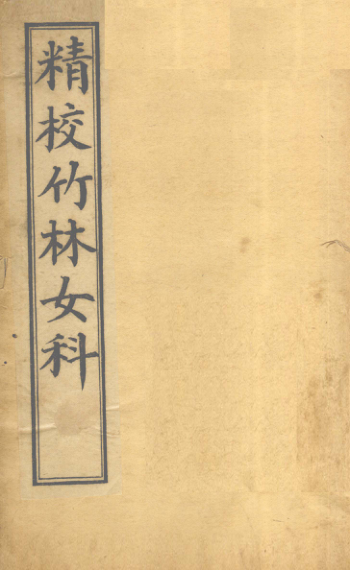 精校竹林女科